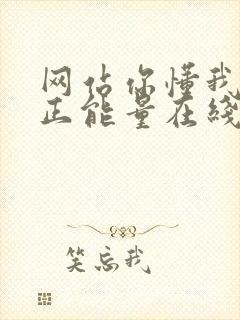 网站你懂我
正能量在线
笑忘我